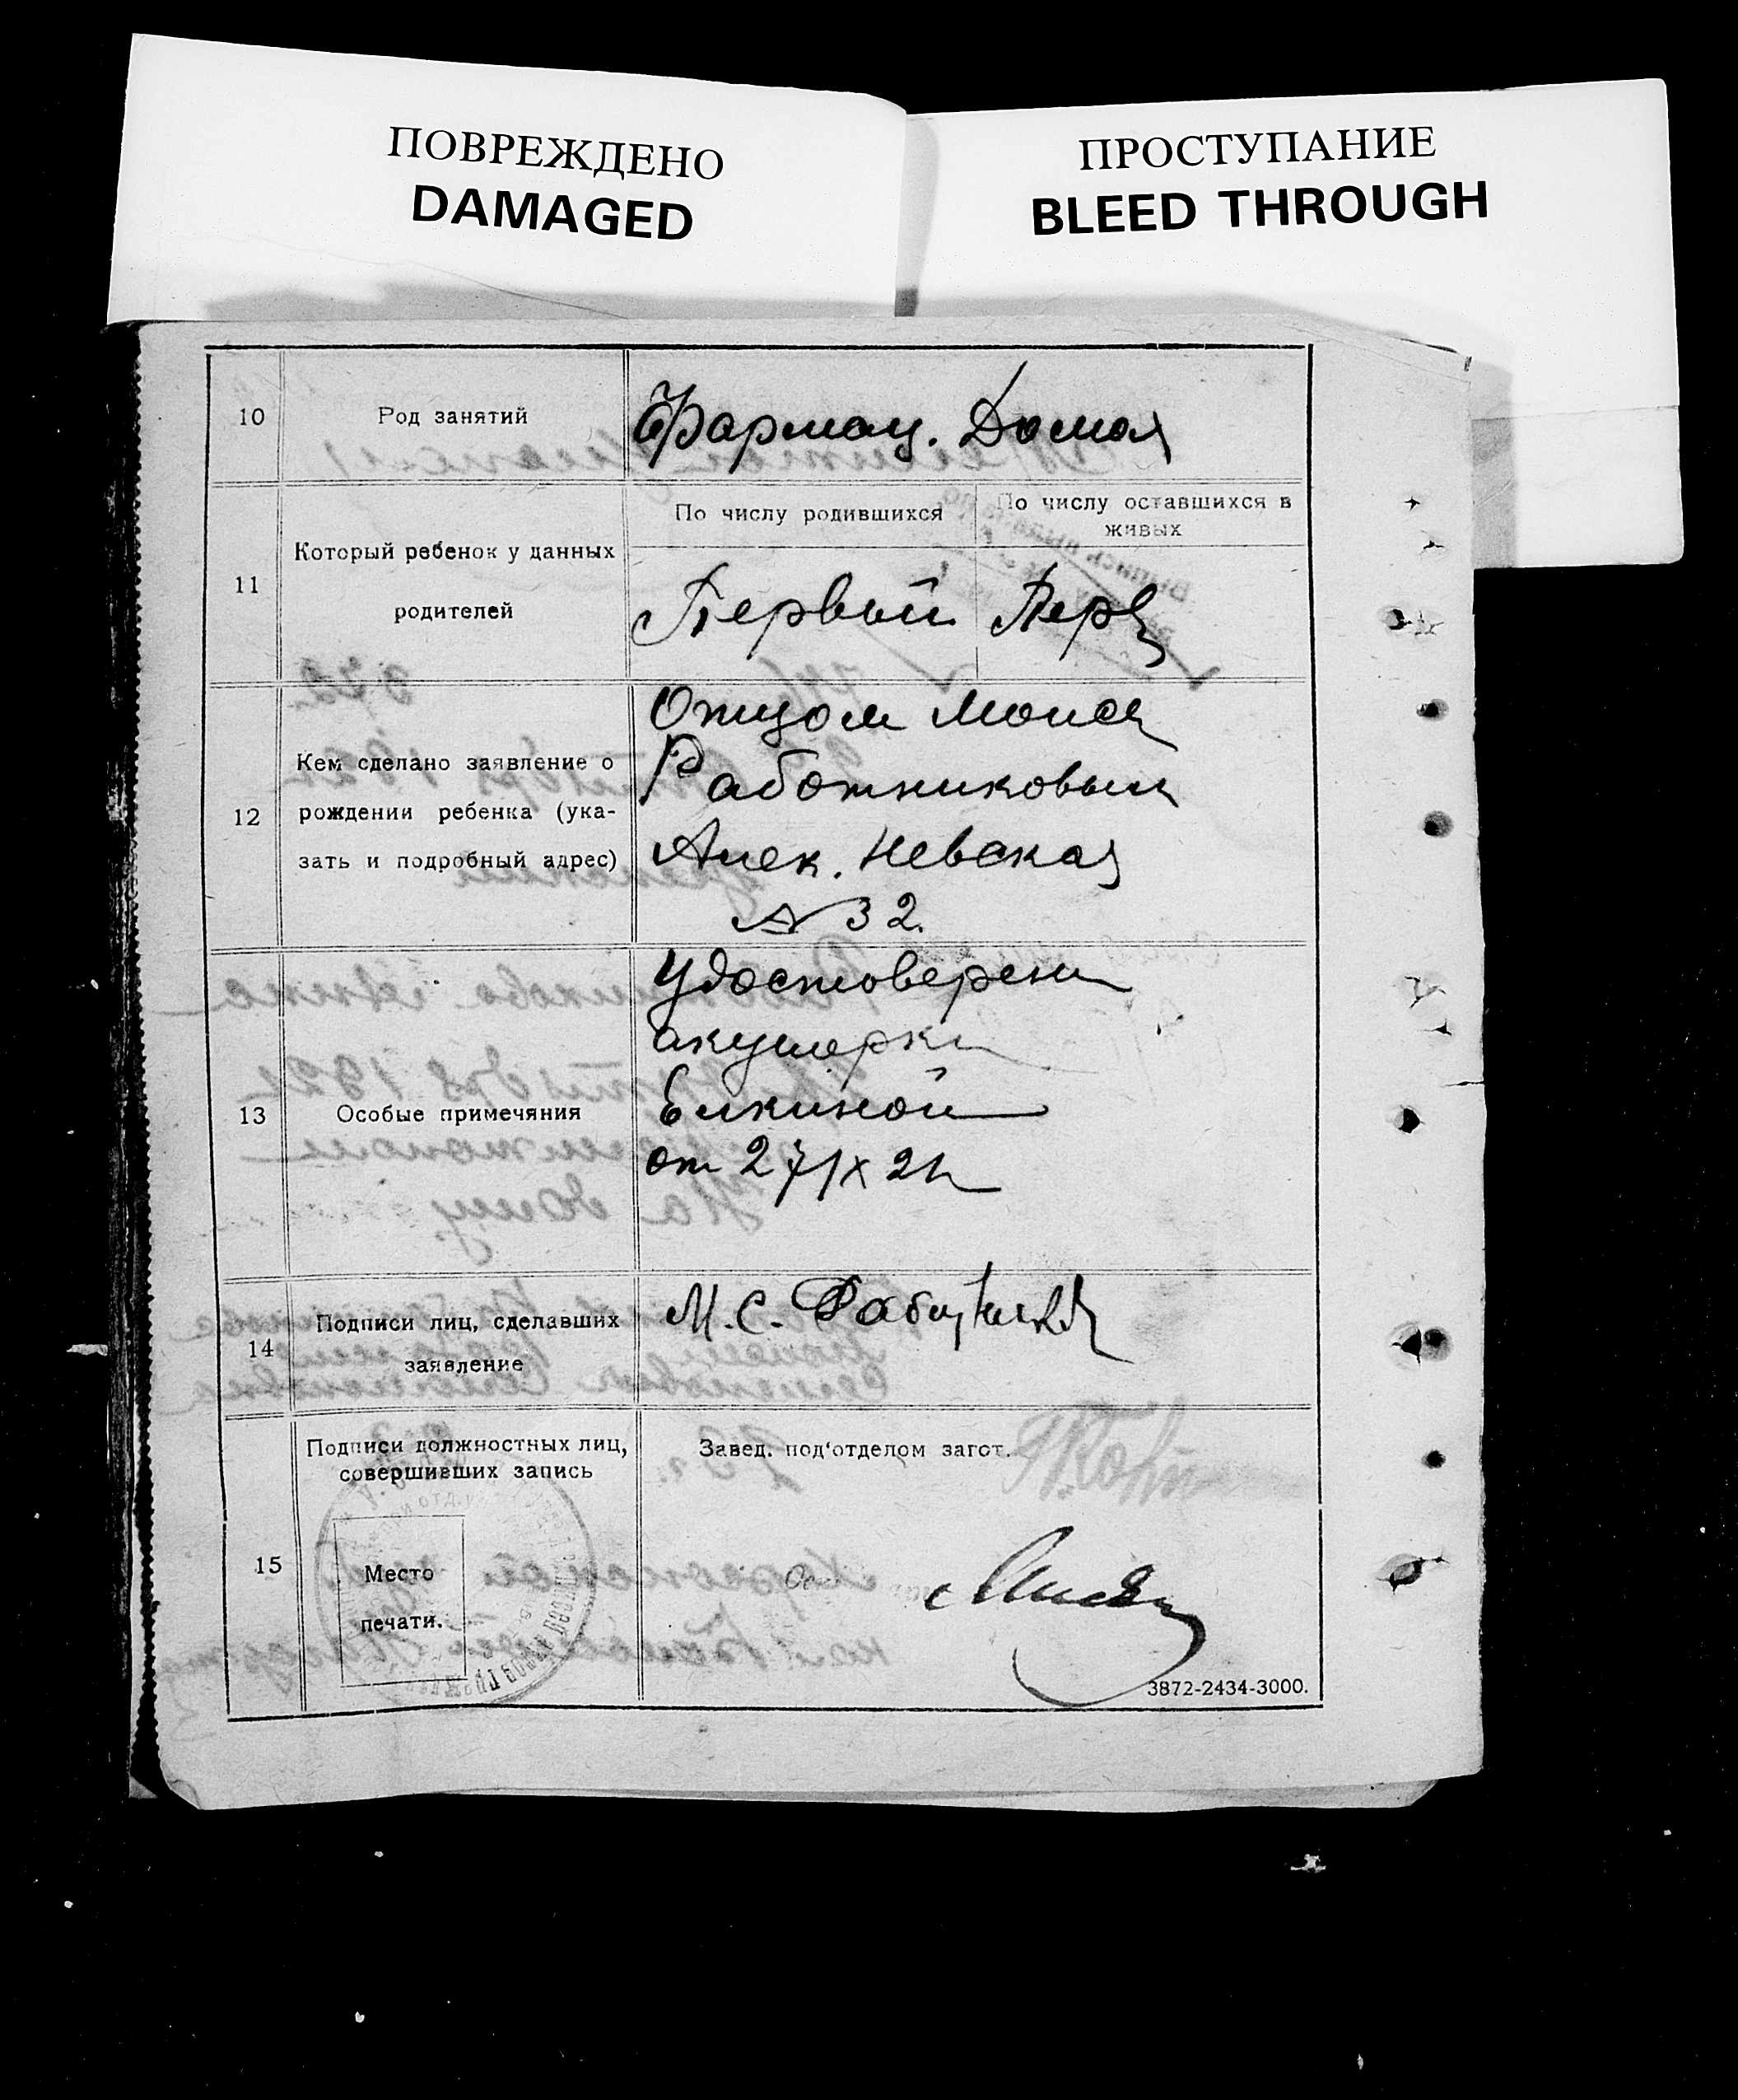 ПОВРЕЖДЕНО
DAMAGED
ПРОСТУПАНИЕ
BLEED THROUGH
10
Род занятий
Фармац. Домаш
11
Который ребенок у данных
родителей
По числу родившихся
По числу оставшихся в
живых
Первый
Перв
12
Кем сделано заявление о
рождении ребенка (ука-
зать и подробный адрес)
Отцом Моисе
Работниковым
Алек. Невская
№ 32.
13
Особые примечяния
Удостоверени
акушерки
Елкиной
от 27/X 22
14
Подписи лиц, сделавших
заявление
М. С. Работников
15
Подписи должностных лиц,
совершивших запись
Место
печати.
Завед. под'отделом загст.
3872-2434-3000.